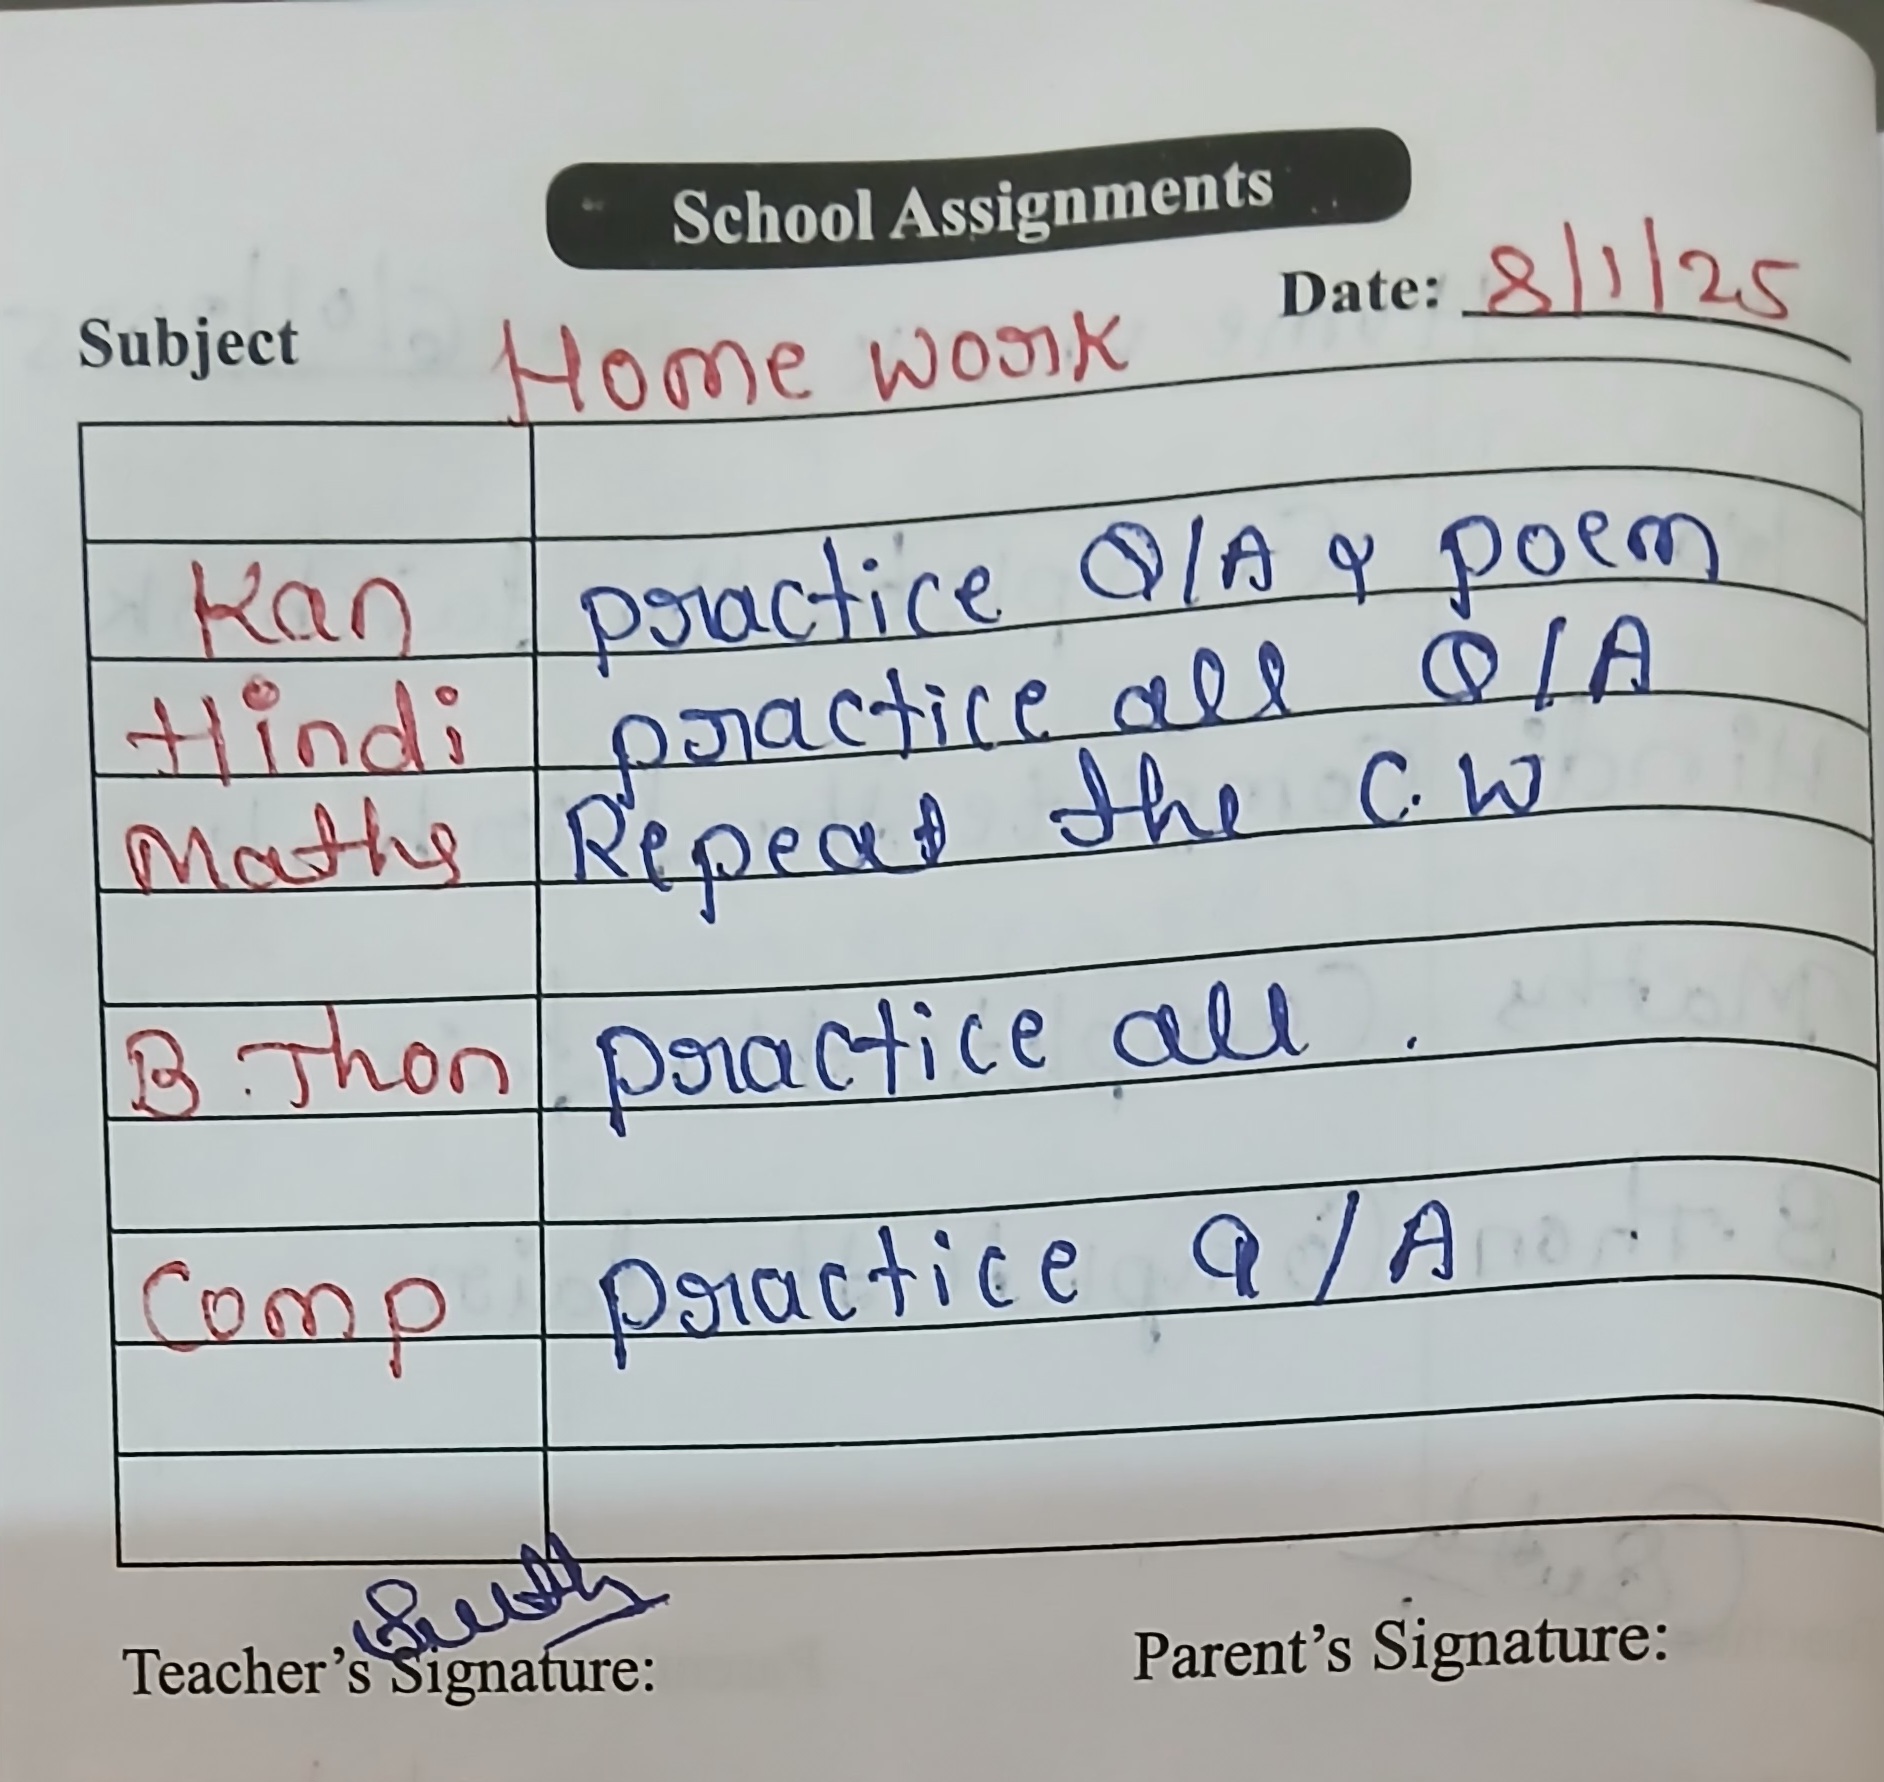 School Assignments
Date: 8/1/25
Subject Home work
Kan practice Q/A & poem
Hindi practice all Q/A
Maths Repeat the C.W
B.Thon practice all.
Comp practice Q/A
Teacher's Signature: Parent's Signature: